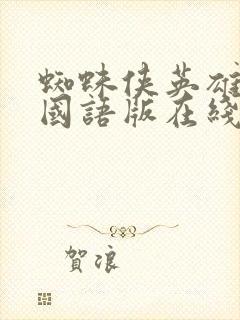 蜘蛛侠英雄
國語版在綫
賀浪